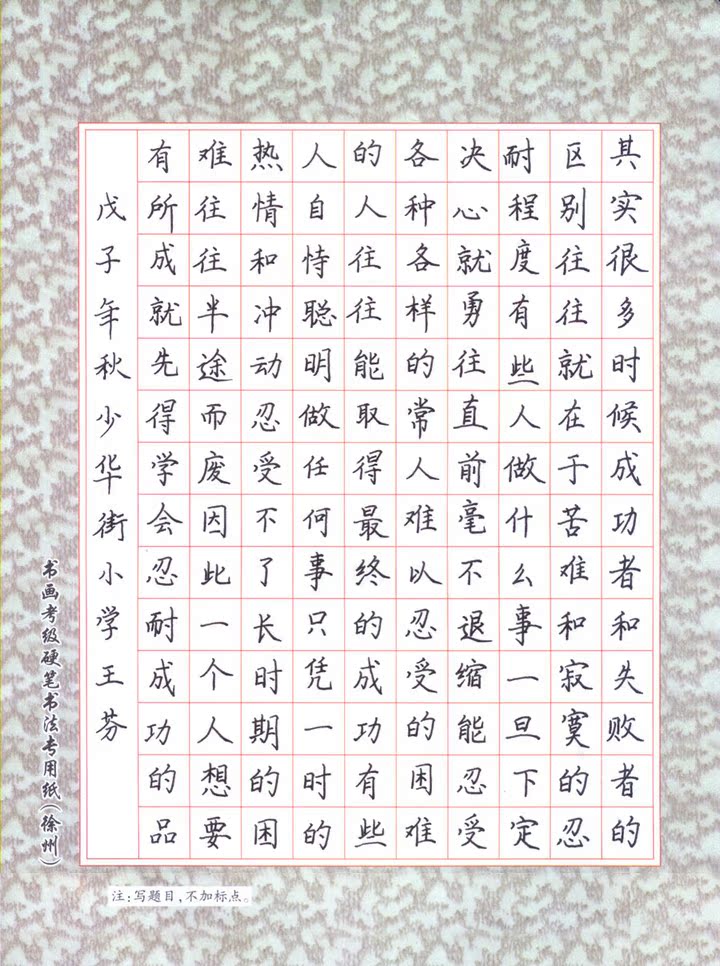 其实很多时候成功者和失败者的
区别往往就在于苦难和寂寞的忍
耐程度有些人做什么事一旦下定
决心就勇往直前毫不退缩能忍受
各种各样的常人难以忍受的困难
的人往往能取得最终的成功有些
人自恃聪明做任何事只凭一时的
热情和冲动忍受不了长时期的困
难往往半途而废因此一个人想要
有所成就先得学会忍耐成功的品
戊子年秋少华街小学王芬
书画考级硬笔书法专用纸(徐州)
注:写题目,不加标点。